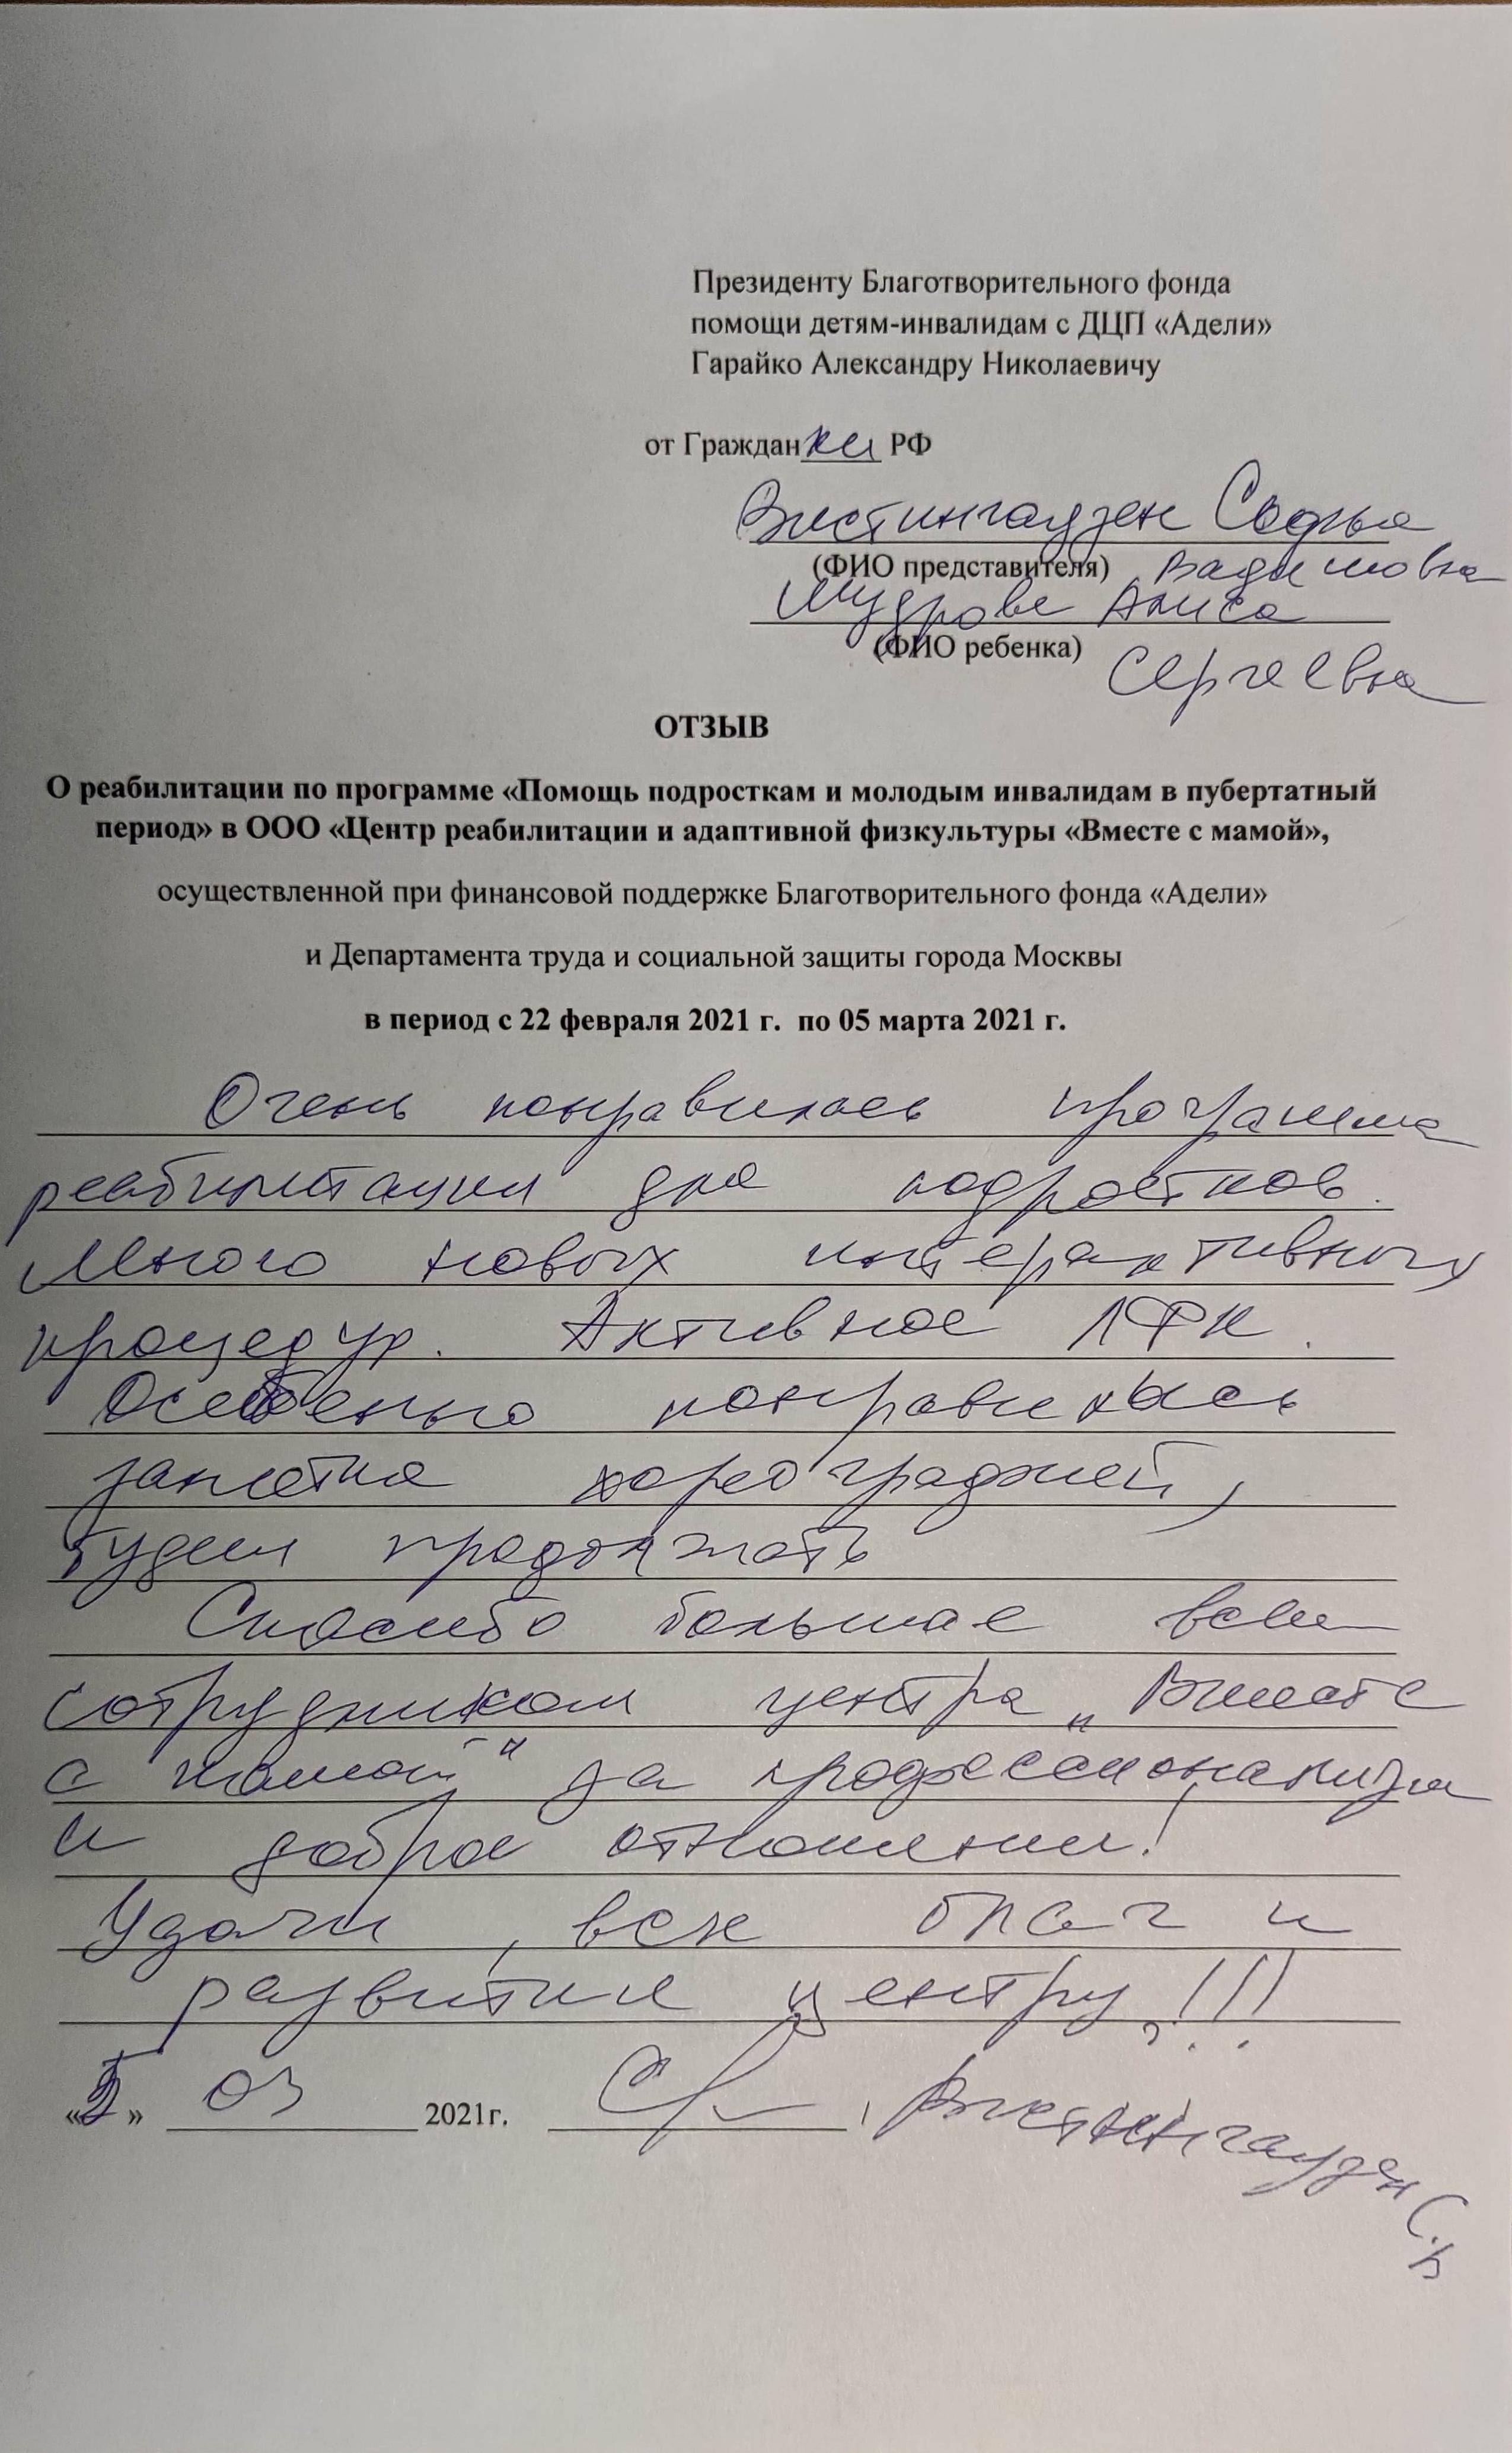 Президенту Благотворительного фонда
помощи детям-инвалидам с ДЦП «Адели»
Гарайко Александру Николаевичу
от Гражданки РФ
Вистингаузен Софья
(ФИО представителя) Вадимовна
Мудрова Алиса
(ФИО ребенка)
Сергеевна
ОТЗЫВ
О реабилитации по программе «Помощь подросткам и молодым инвалидам в пубертатный
период» в ООО «Центр реабилитации и адаптивной физкультуры «Вместе с мамой»,
осуществленной при финансовой поддержке Благотворительного фонда «Адели»
и Департамента труда и социальной защиты города Москвы
в период с 22 февраля 2021 г. по 05 марта 2021 г.
Очень понравилась программа
реабилитации для подростков.
Много новых интерактивных
процедур. Активное ЛФК.
Особенно понравились
занятия хореографией,
будем продолжать
Спасибо большое всем
сотрудникам центра „Вместе
с мамой" за профессионализм
и доброе отношение!
Удачи, всех благ и
развития центру!!!
«5» 03 2021г. , Вистингаузен С.В